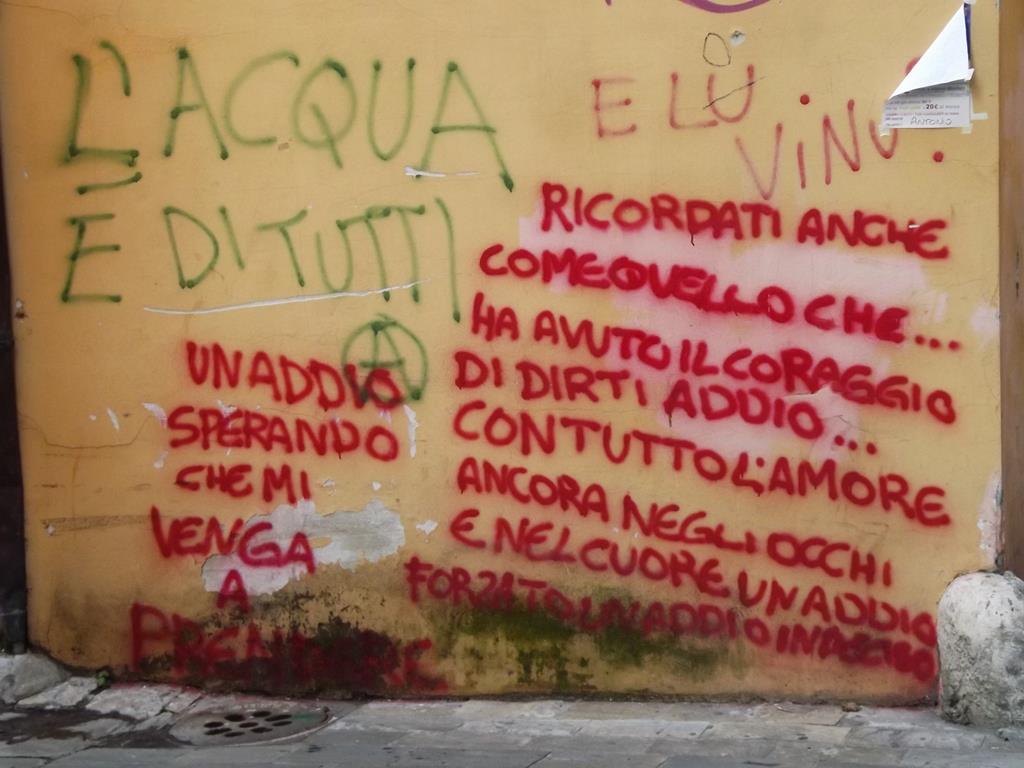 L'ACQUA
È DI TUTTI
E LÙ
VINU?
20€
ANTONIO
RICORDATI ANCHE
COME QUELLO CHE...
HA AVUTO IL CORAGGIO
DI DIRTI ADDIO...
CON TUTTO L'AMORE
ANCORA NEGLI OCCHI
E NEL CUORE UN ADDIO
FORZATO UN ADDIO
A
UN ADDIO
SPERANDO
CHE MI
VENGA
A
PRENDERE